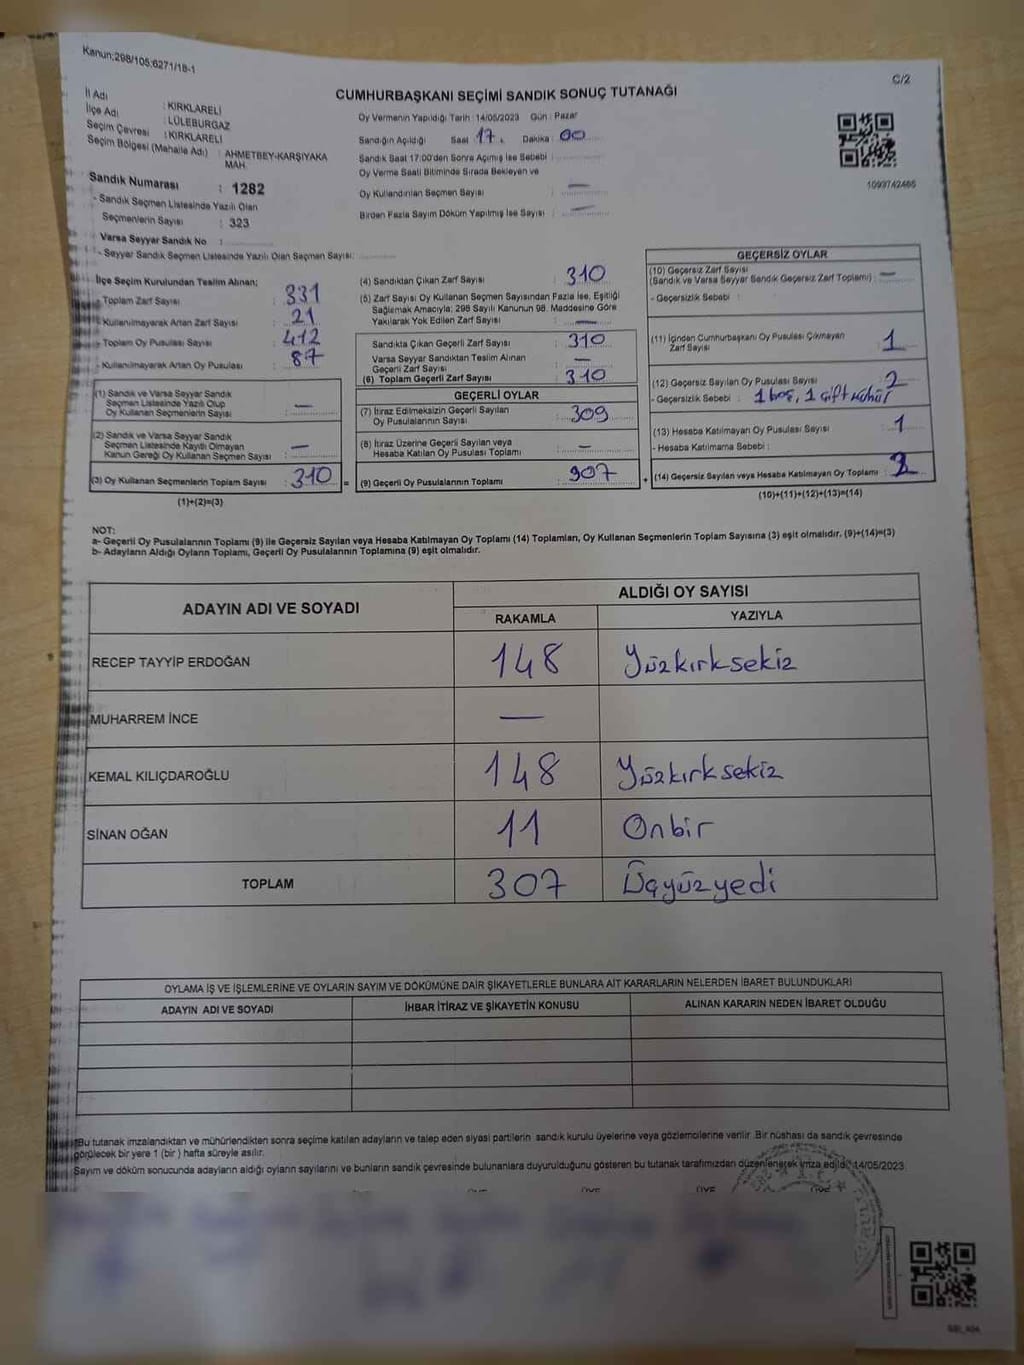 Kanun:298/105;6271/18-1
C/2
CUMHURBAŞKANI SEÇİMİ SANDIK SONUÇ TUTANAĞI
İl Adı : KIRKLARELİ
İlçe Adı : LÜLEBURGAZ
Seçim Çevresi : KIRKLARELİ
Seçim Bölgesi (Mahalle Adı) : AHMETBEY-KARŞIYAKA MAH.
Sandık Numarası : 1282
- Sandık Seçmen Listesinde Yazılı Olan
Seçmenlerin Sayısı : 323
Varsa Seyyar Sandık No :
- Seyyar Sandık Seçmen Listesinde Yazılı Olan Seçmen Sayısı:
Oy Vermenin Yapıldığı Tarih : 14/05/2023 Gün : Pazar
Sandığın Açıldığı Saat 17. Dakika : 00
Sandık Saat 17:00'den Sonra Açımış İse Sebebi :
Oy Verme Saati Bitiminde Sırada Bekleyen ve
Oy Kullandırılan Seçmen Sayısı : —
Birden Fazla Sayım Döküm Yapılmış İse Sayısı : —
1093742465
İlçe Seçim Kurulundan Teslim Alınan;
- Toplam Zarf Sayısı : 331
- Kullanılmayarak Artan Zarf Sayısı : 21
- Toplam Oy Pusulası Sayısı : 412
- Kullanılmayarak Artan Oy Pusulası : 87
(1) Sandık ve Varsa Seyyar Sandık
Seçmen Listesinde Yazılı Olup
Oy Kullanan Seçmenlerin Sayısı : —
(2) Sandık ve Varsa Seyyar Sandık
Seçmen Listesinde Kayıtlı Olmayan
Kanun Gereği Oy Kullanan Seçmen Sayısı : —
(3) Oy Kullanan Seçmenlerin Toplam Sayısı : 310 =
(1)+(2)=(3)
(4) Sandıktan Çıkan Zarf Sayısı : 310
(5) Zarf Sayısı Oy Kullanan Seçmen Sayısından Fazla İse, Eşitliği
Sağlamak Amacıyla; 298 Sayılı Kanunun 98. Maddesine Göre
Yakılarak Yok Edilen Zarf Sayısı : —
Sandıkta Çıkan Geçerli Zarf Sayısı : 310
Varsa Seyyar Sandıktan Teslim Alınan
Geçerli Zarf Sayısı : —
(6) Toplam Geçerli Zarf Sayısı : 310
GEÇERLİ OYLAR
(7) İtiraz Edilmeksizin Geçerli Sayılan
Oy Pusulalarının Sayısı : 309
(8) İtiraz Üzerine Geçerli Sayılan veya
Hesaba Katılan Oy Pusulası Toplamı : —
(9) Geçerli Oy Pusulalarının Toplamı : 907 +
GEÇERSİZ OYLAR
(10) Geçersiz Zarf Sayısı
(Sandık ve Varsa Seyyar Sandık Geçersiz Zarf Toplamı) : —
- Geçersizlik Sebebi :
(11) İçinden Cumhurbaşkanı Oy Pusulası Çıkmayan
Zarf Sayısı : 1
(12) Geçersiz Sayılan Oy Pusulası Sayısı : 2
- Geçersizlik Sebebi : 1 boş, 1 çift mühür
(13) Hesaba Katılmayan Oy Pusulası Sayısı : 1
- Hesaba Katılmama Sebebi :
(14) Geçersiz Sayılan veya Hesaba Katılmayan Oy Toplamı :
(10)+(11)+(12)+(13)=(14)
NOT:
a- Geçerli Oy Pusulalarının Toplamı (9) ile Geçersiz Sayılan veya Hesaba Katılmayan Oy Toplamı (14) Toplamları, Oy Kullanan Seçmenlerin Toplam Sayısına (3) eşit olmalıdır. (9)+(14)=(3)
b- Adayların Aldığı Oyların Toplamı, Geçerli Oy Pusulalarının Toplamına (9) eşit olmalıdır.
ADAYIN ADI VE SOYADI ALDIĞI OY SAYISI
RAKAMLA YAZIYLA
RECEP TAYYİP ERDOĞAN 148 Yüzkırksekiz
MUHARREM İNCE —
KEMAL KILIÇDAROĞLU 148 Yüzkırksekiz
SİNAN OĞAN 11 Onbir
TOPLAM 307 Üçyüzyedi
OYLAMA İŞ VE İŞLEMLERİNE VE OYLARIN SAYIM VE DÖKÜMÜNE DAİR ŞİKAYETLERLE BUNLARA AİT KARARLARIN NELERDEN İBARET BULUNDUKLARI
ADAYIN ADI VE SOYADI İHBAR İTİRAZ VE ŞİKAYETİN KONUSU ALINAN KARARIN NEDEN İBARET OLDUĞU
Bu tutanak imzalandıktan ve mühürlendikten sonra seçime katılan adayların ve talep eden siyasi partilerin sandık kurulu üyelerine veya gözlemcilerine verilir. Bir nüshası da sandık çevresinde
görülecek bir yere 1 (bir ) hafta süreyle asılır.
Sayım ve döküm sonucunda adayların aldığı oyların sayılarını ve bunların sandık çevresinde bulunanlara duyurulduğunu gösteren bu tutanak tarafımızdan düzenlenerek imza edildi. 14/05/2023
ÜYE ÜYE ÜYE ÜYE